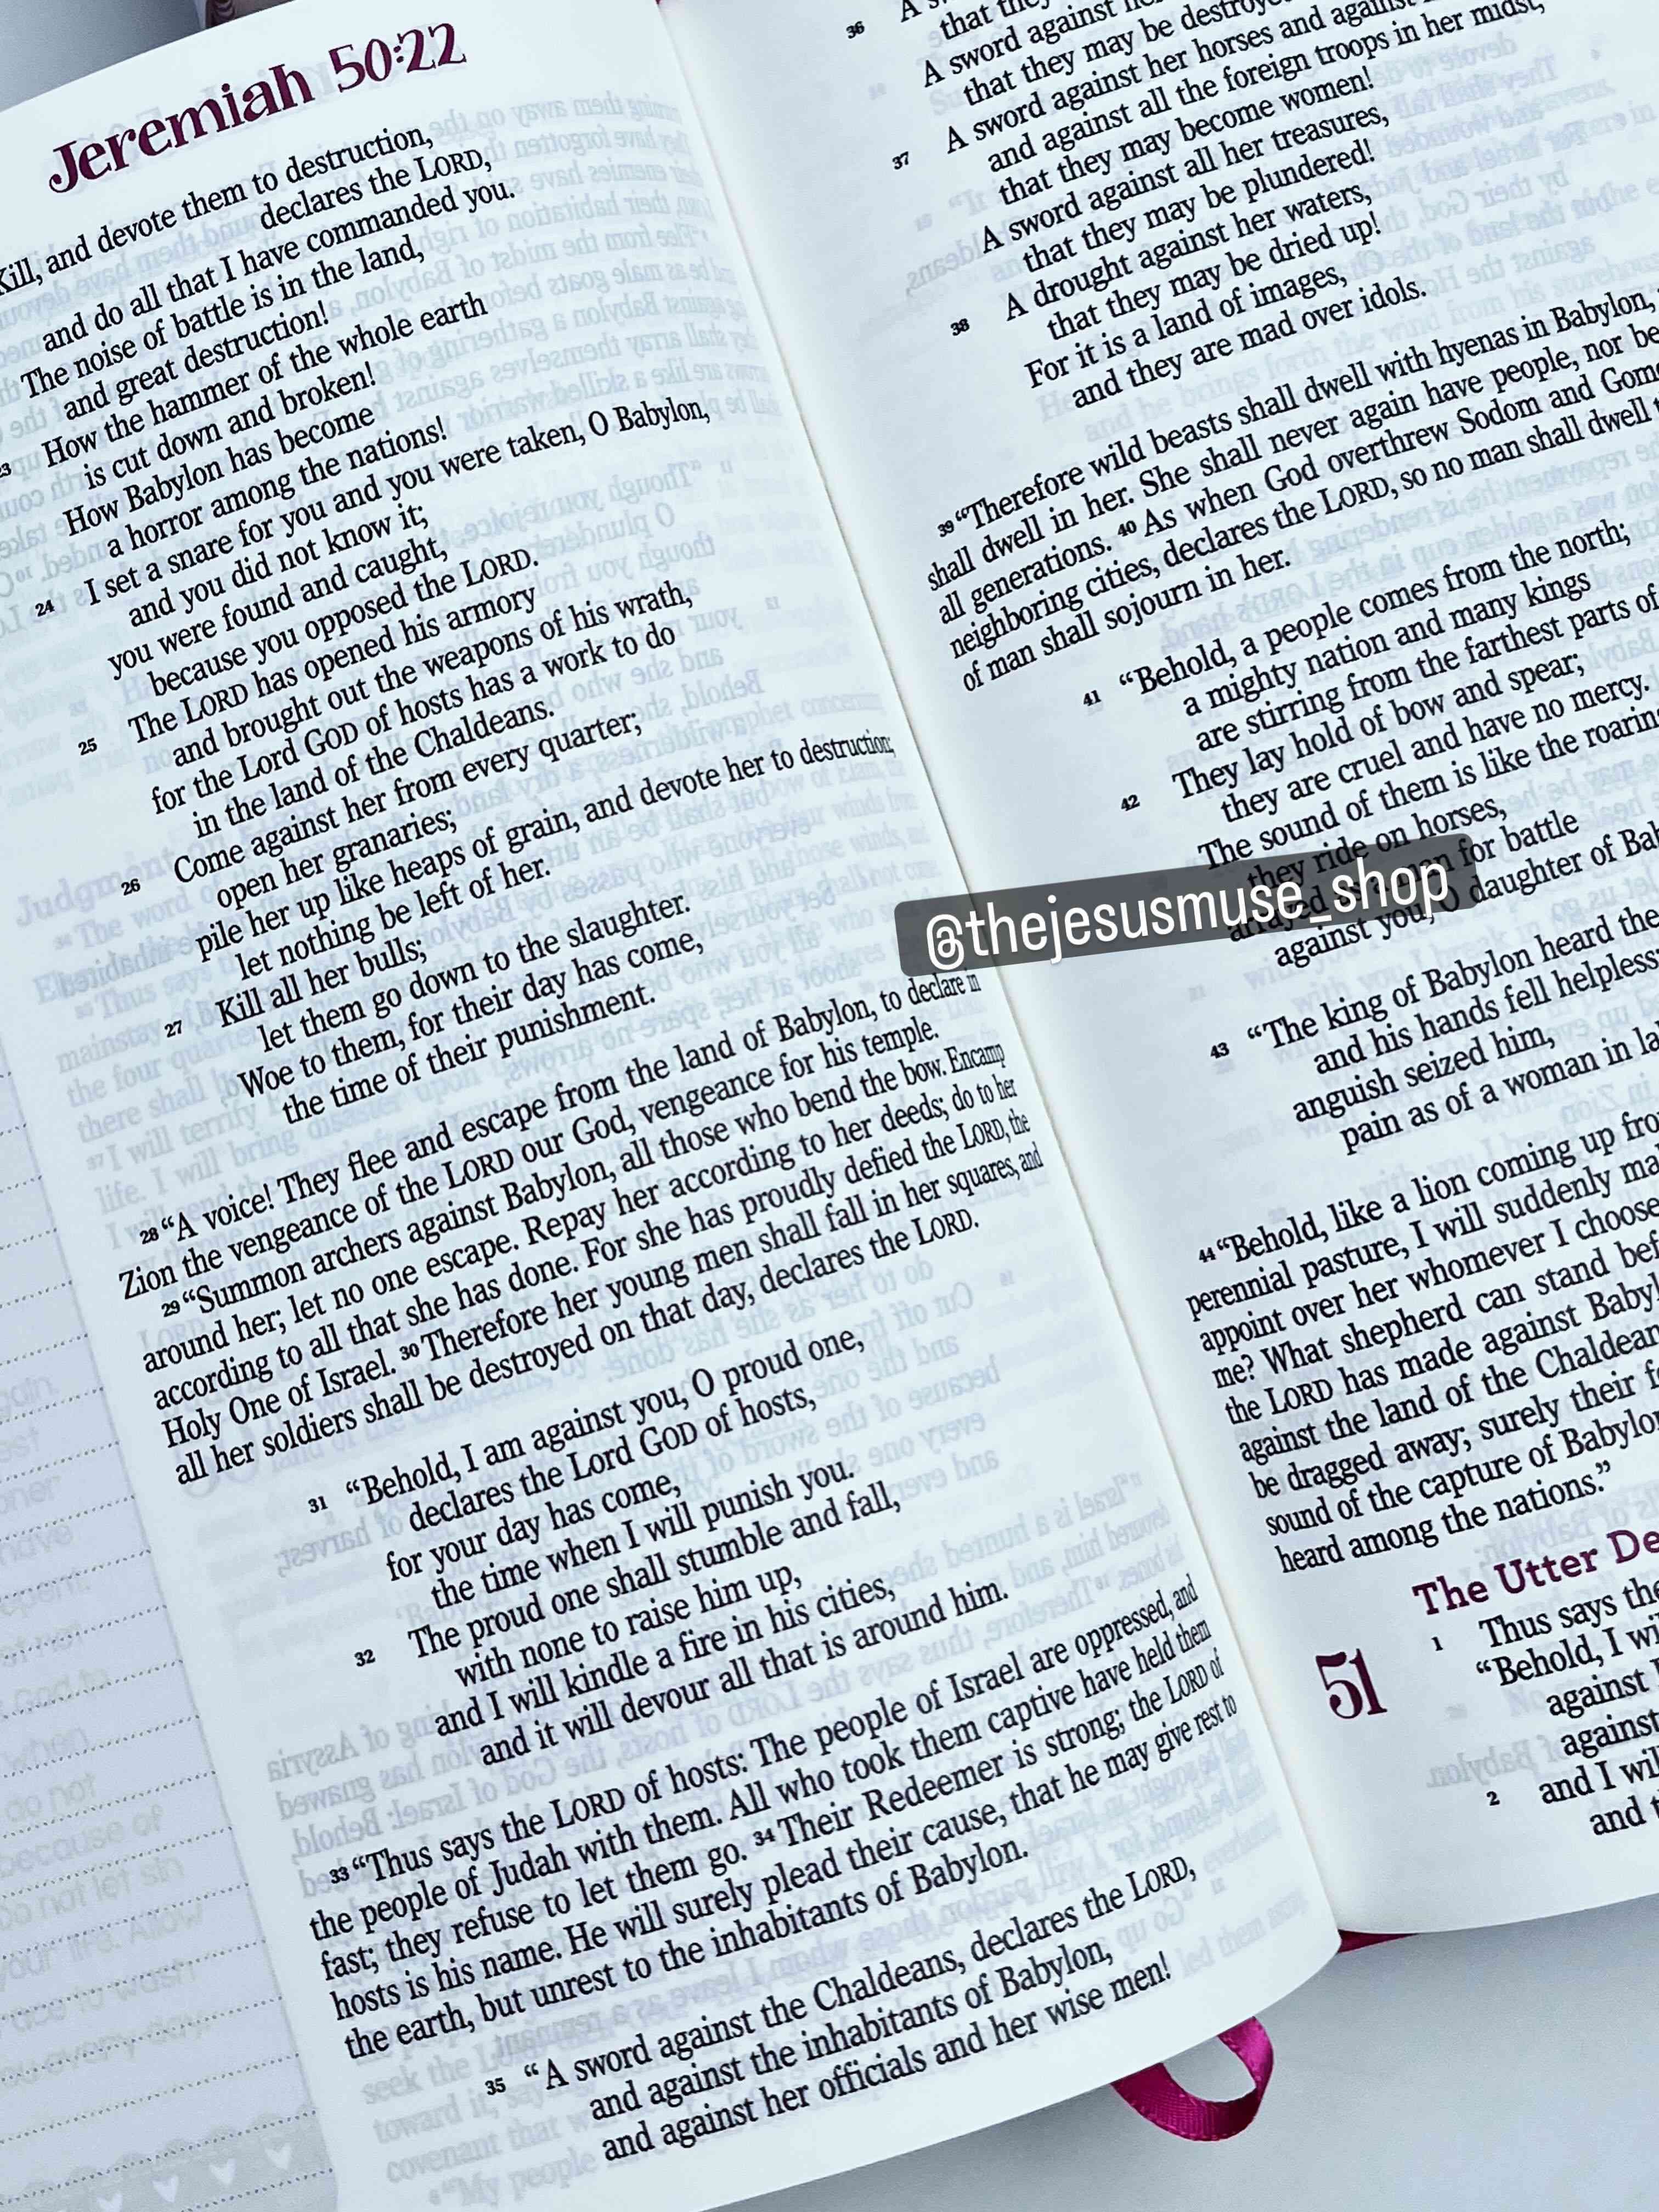 Jeremiah 50:22
Kill, and devote them to destruction,
declares the LORD,
and do all that I have commanded you.
The noise of battle is in the land,
and great destruction!
23 How the hammer of the whole earth
is cut down and broken!
How Babylon has become
a horror among the nations!
24 I set a snare for you and you were taken, O Babylon,
and you did not know it;
you were found and caught,
because you opposed the LORD.
25 The LORD has opened his armory
and brought out the weapons of his wrath,
for the Lord GOD of hosts has a work to do
in the land of the Chaldeans.
26 Come against her from every quarter;
open her granaries;
pile her up like heaps of grain, and devote her to destruction;
let nothing be left of her.
27 Kill all her bulls;
let them go down to the slaughter.
Woe to them, for their day has come,
the time of their punishment.
28 “A voice! They flee and escape from the land of Babylon, to declare in
Zion the vengeance of the LORD our God, vengeance for his temple.
29 “Summon archers against Babylon, all those who bend the bow. Encamp
around her; let no one escape. Repay her according to her deeds; do to her
according to all that she has done. For she has proudly defied the LORD, the
Holy One of Israel. 30 Therefore her young men shall fall in her squares, and
all her soldiers shall be destroyed on that day, declares the LORD.
31 “Behold, I am against you, O proud one,
declares the Lord GOD of hosts,
for your day has come,
the time when I will punish you.
32 The proud one shall stumble and fall,
with none to raise him up,
and I will kindle a fire in his cities,
and it will devour all that is around him.
33 “Thus says the LORD of hosts: The people of Israel are oppressed, and
the people of Judah with them. All who took them captive have held them
fast; they refuse to let them go. 34 Their Redeemer is strong; the LORD of
hosts is his name. He will surely plead their cause, that he may give rest to
the earth, but unrest to the inhabitants of Babylon.
35 “A sword against the Chaldeans, declares the LORD,
and against the inhabitants of Babylon,
and against her officials and her wise men!
36 A
that they
A sword against her
that they may be destroyed
37 A sword against her horses and against
and against all the foreign troops in her midst,
that they may become women!
A sword against all her treasures,
that they may be plundered!
38 A drought against her waters,
that they may be dried up!
For it is a land of images,
and they are mad over idols.
39 “Therefore wild beasts shall dwell with hyenas in Babylon,
shall dwell in her. She shall never again have people, nor be
all generations. 40 As when God overthrew Sodom and
neighboring cities, declares the LORD, so no man shall dwell
of man shall sojourn in her.
41 “Behold, a people comes from the north;
a mighty nation and many kings
are stirring from the farthest parts of
42 They lay hold of bow and spear;
they are cruel and have no mercy.
The sound of them is like the roaring
they ride on horses,
arrayed as a man for battle
against you, O daughter of
@thejesusmuse_shop
43 “The king of Babylon heard the
and his hands fell helpless;
anguish seized him,
pain as of a woman in
44 “Behold, like a lion coming up
perennial pasture, I will suddenly
appoint over her whomever I choose
me? What shepherd can stand
the LORD has made against
against the land of the
be dragged away; surely their
sound of the capture of
heard among the nations.”
The Utter
51
1 Thus says the
“Behold, I
against
against
2 and I
and